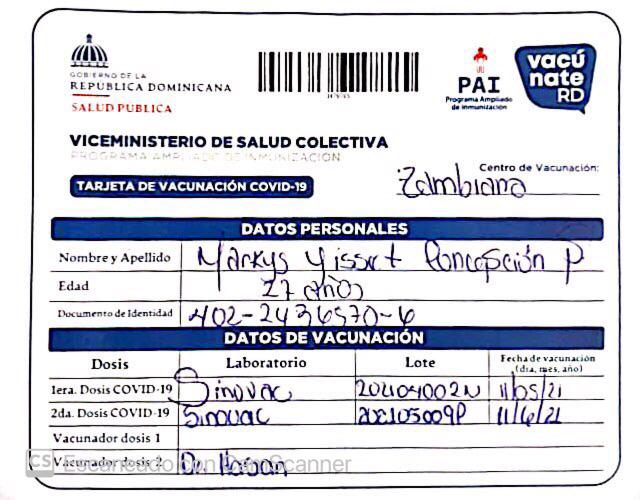 GOBIERNO DE LA
REPÚBLICA DOMINICANA
SALUD PÚBLICA
PAI
Programa Ampliado
de Inmunización
vacú
nate
RD
VICEMINISTERIO DE SALUD COLECTIVA
PROGRAMA AMPLIADO DE INMUNIZACIÓN
Centro de Vacunación:
TARJETA DE VACUNACIÓN COVID-19
Zambrana
DATOS PERSONALES
Nombre y Apellido Markys Yisset Concepción P
Edad 27 años
Documento de Identidad 402-2436570-6
DATOS DE VACUNACIÓN
Dosis Laboratorio Lote Fecha de vacunación
(día, mes, año)
1era. Dosis COVID-19 Sinovac 202104002N 11/05/21
2da. Dosis COVID-19 Sinovac 11/6/21
Vacunador dosis 1
Vacunador dosis 2 Dr.
CS Escaneado con CamScanner